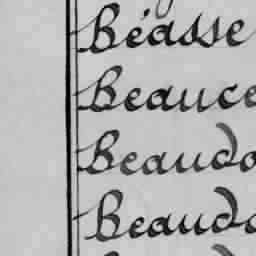 Béasse
Beauce
Beaudo
Beaudo